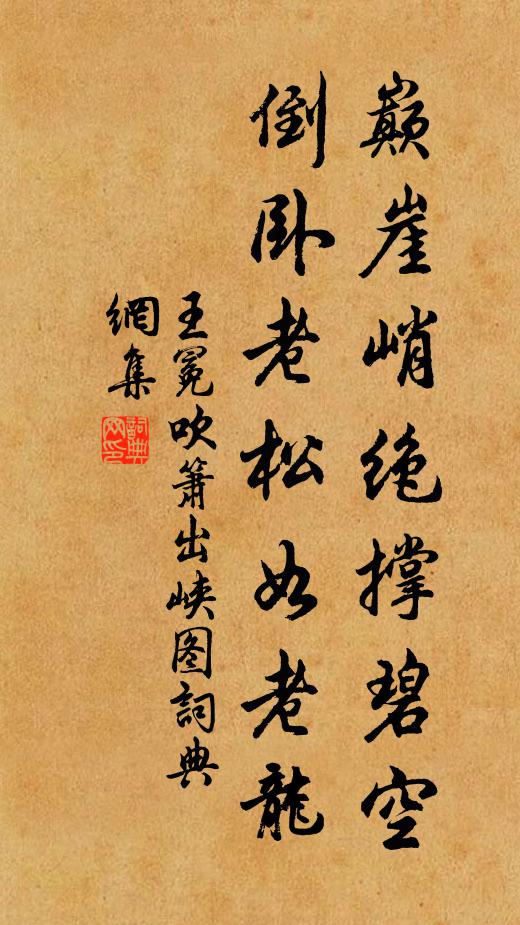 巅崖峭绝撑碧空
倒卧老松如老龍
王冕吹箫出峡图詞典
網集
詞典
网印